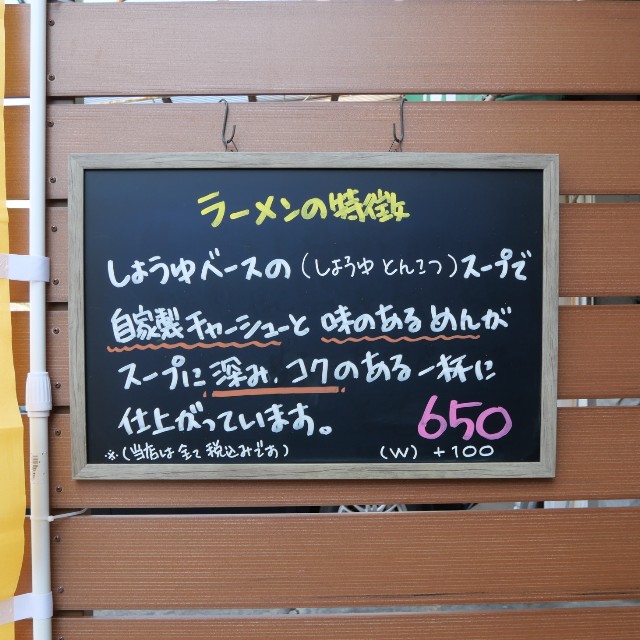 ラーメンの特徴
しょうゆベースの(しょうゆとんこつ)スープで
自家製チャーシューと味のあるめんが
スープに深み、コクのある一杯に
仕上がっています。
650
※(当店は全て税込みです)
(W) +100